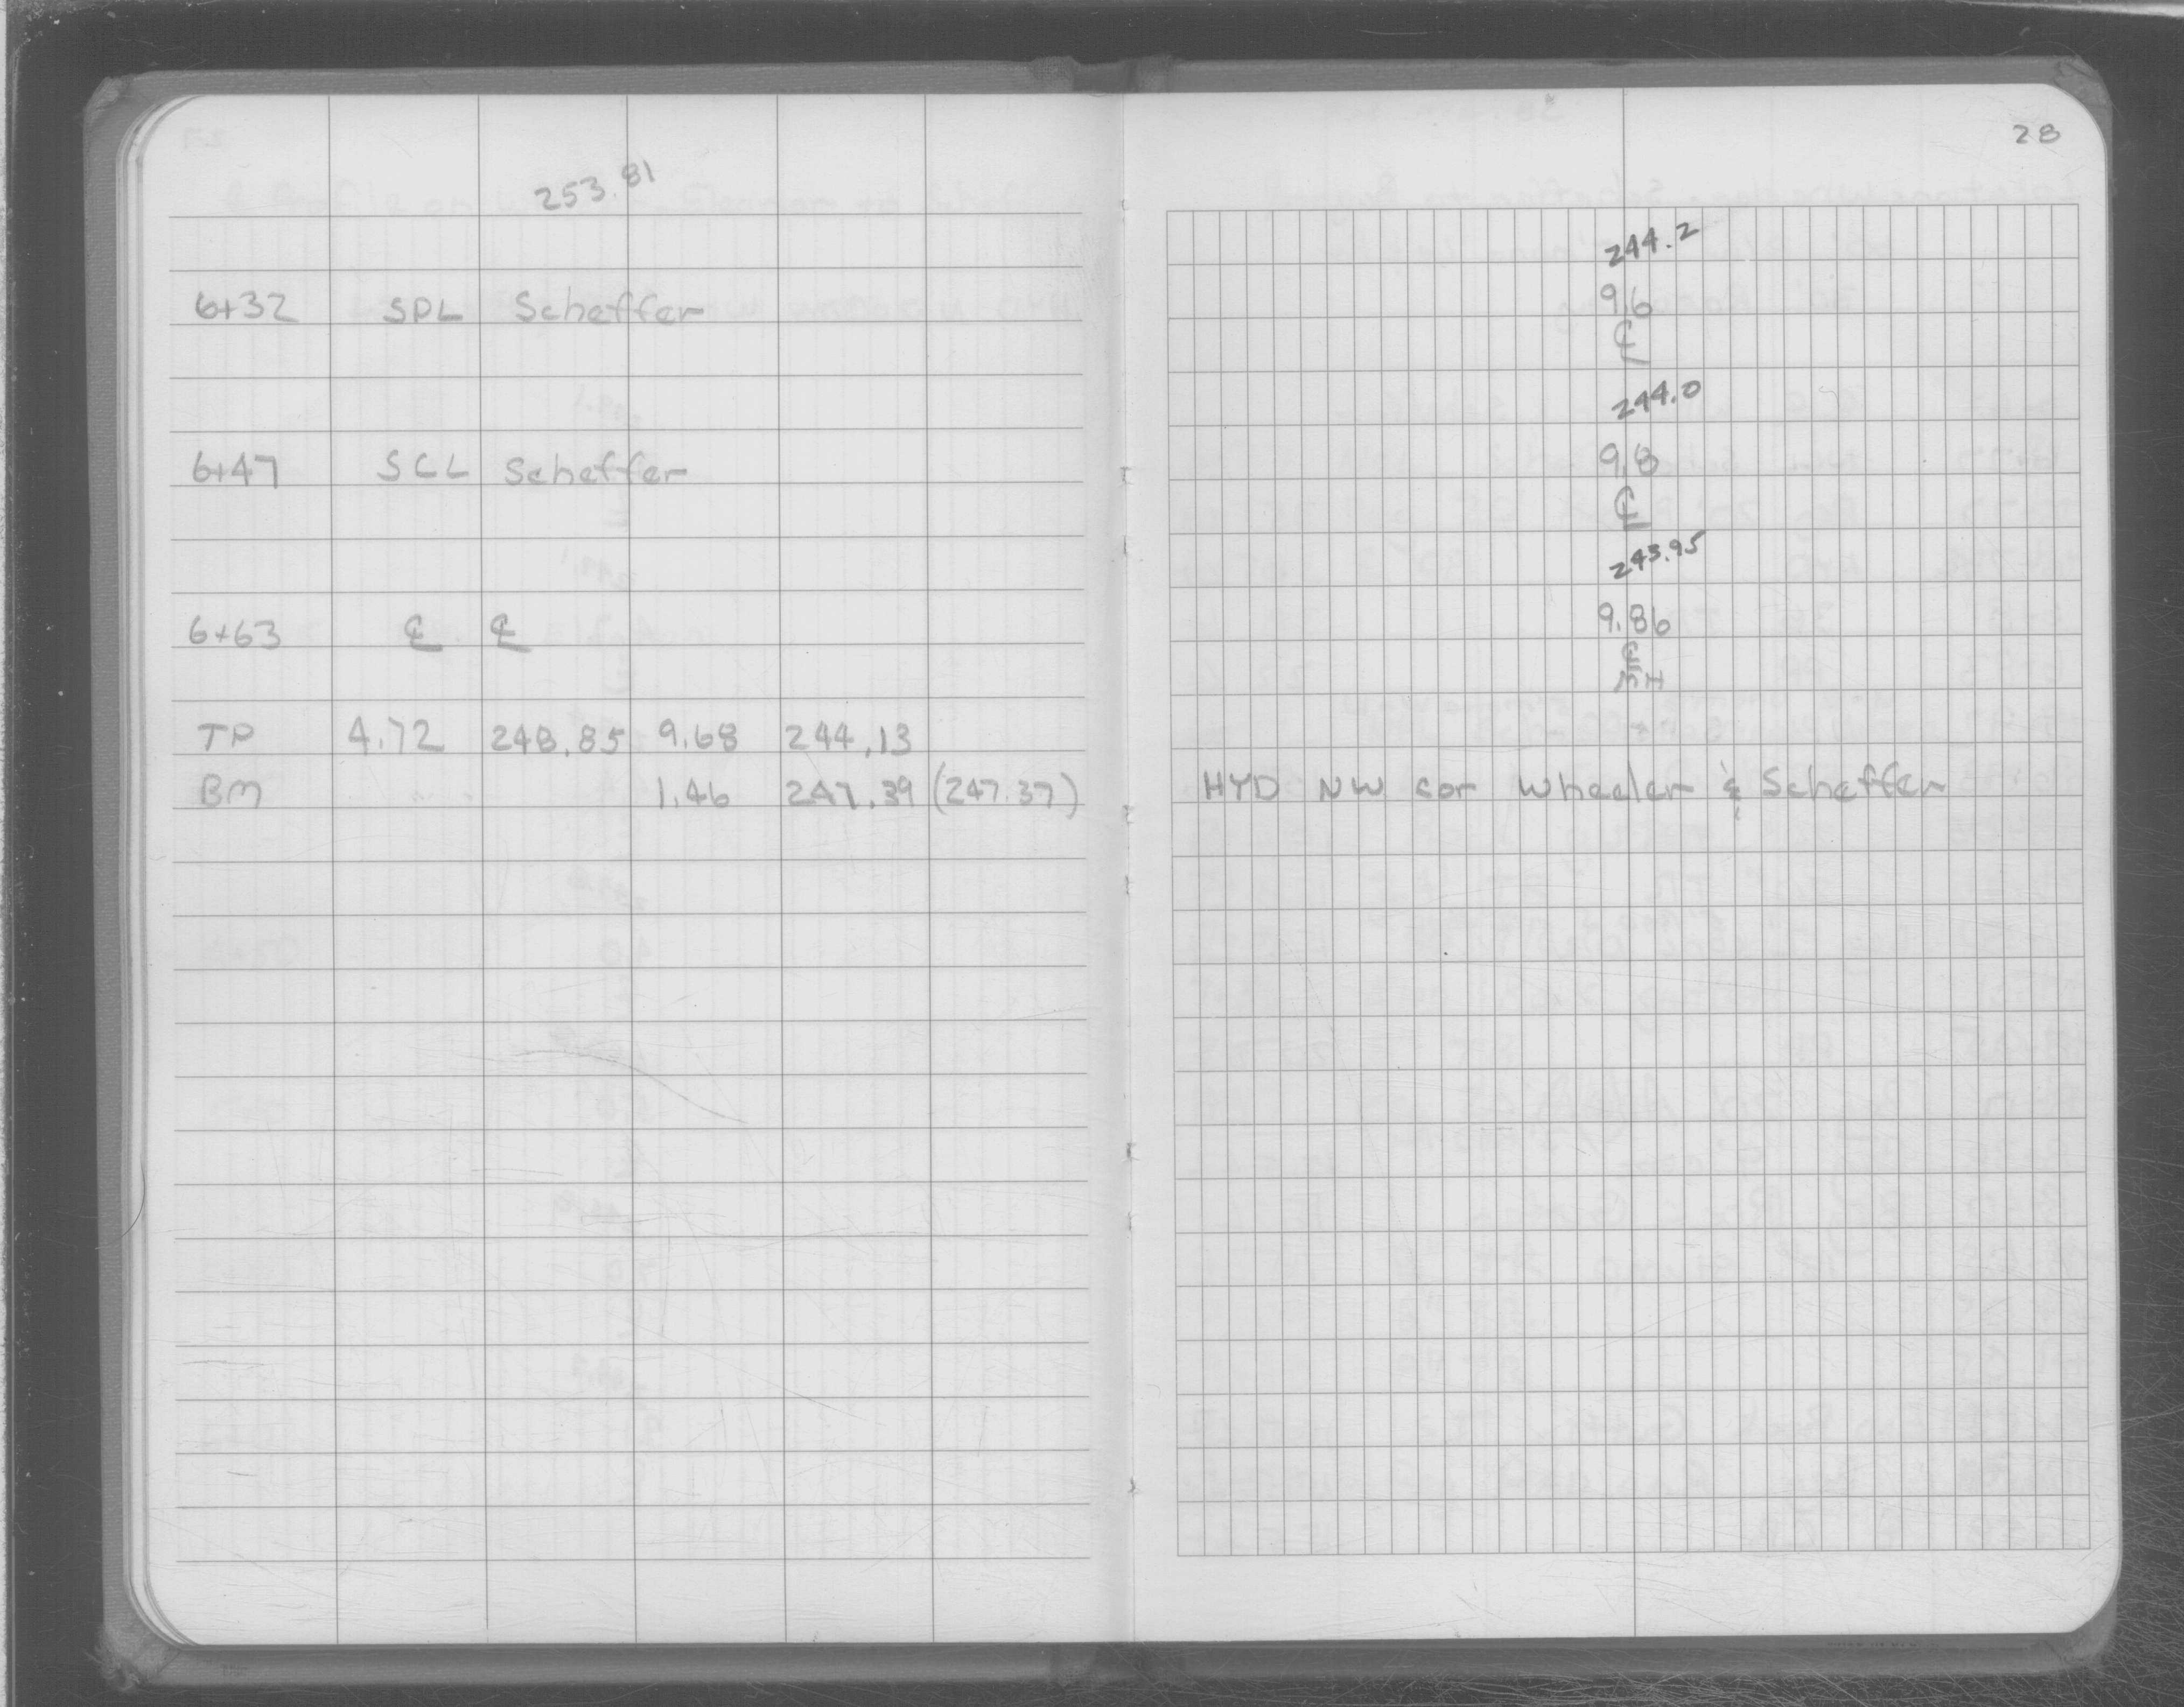 28
253.81
244.2
6+32 SPL Scheffer 9.6
℄
244.0
6+47 SCL Scheffer 9.8
℄
243.95
6+63 ℄ ℄ 9.86
℄
MH
TP 4.72 248.85 9.68 244.13
BM 1.46 247.39 (247.37) HYD NW cor Wheeler & Scheffer